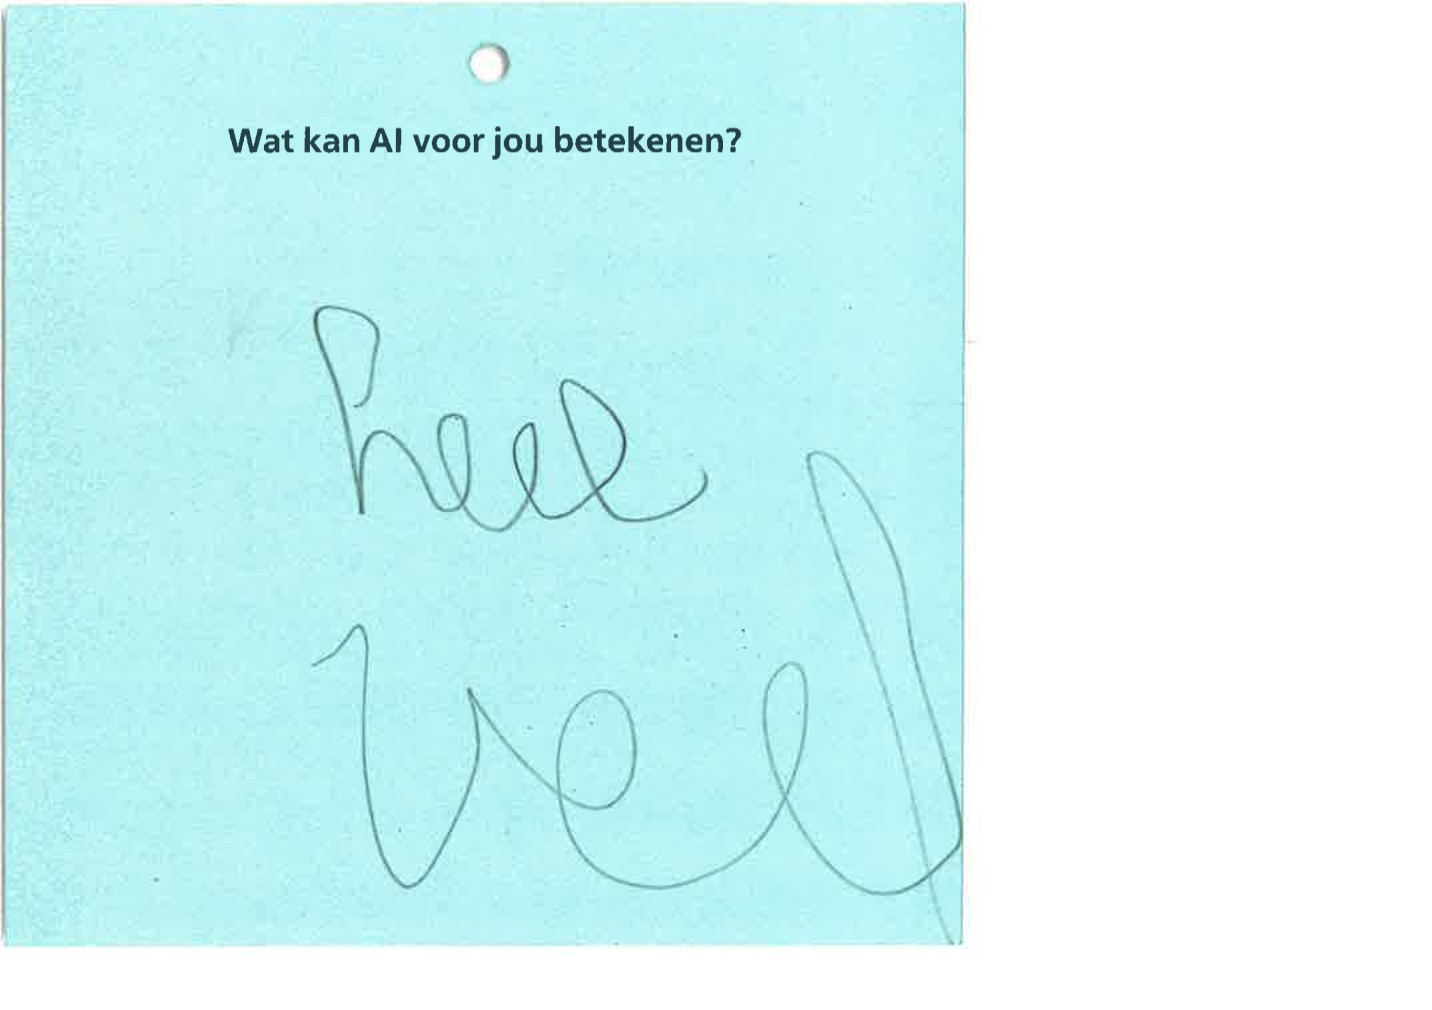 Wat kan AI voor jou betekenen?
heel
veel